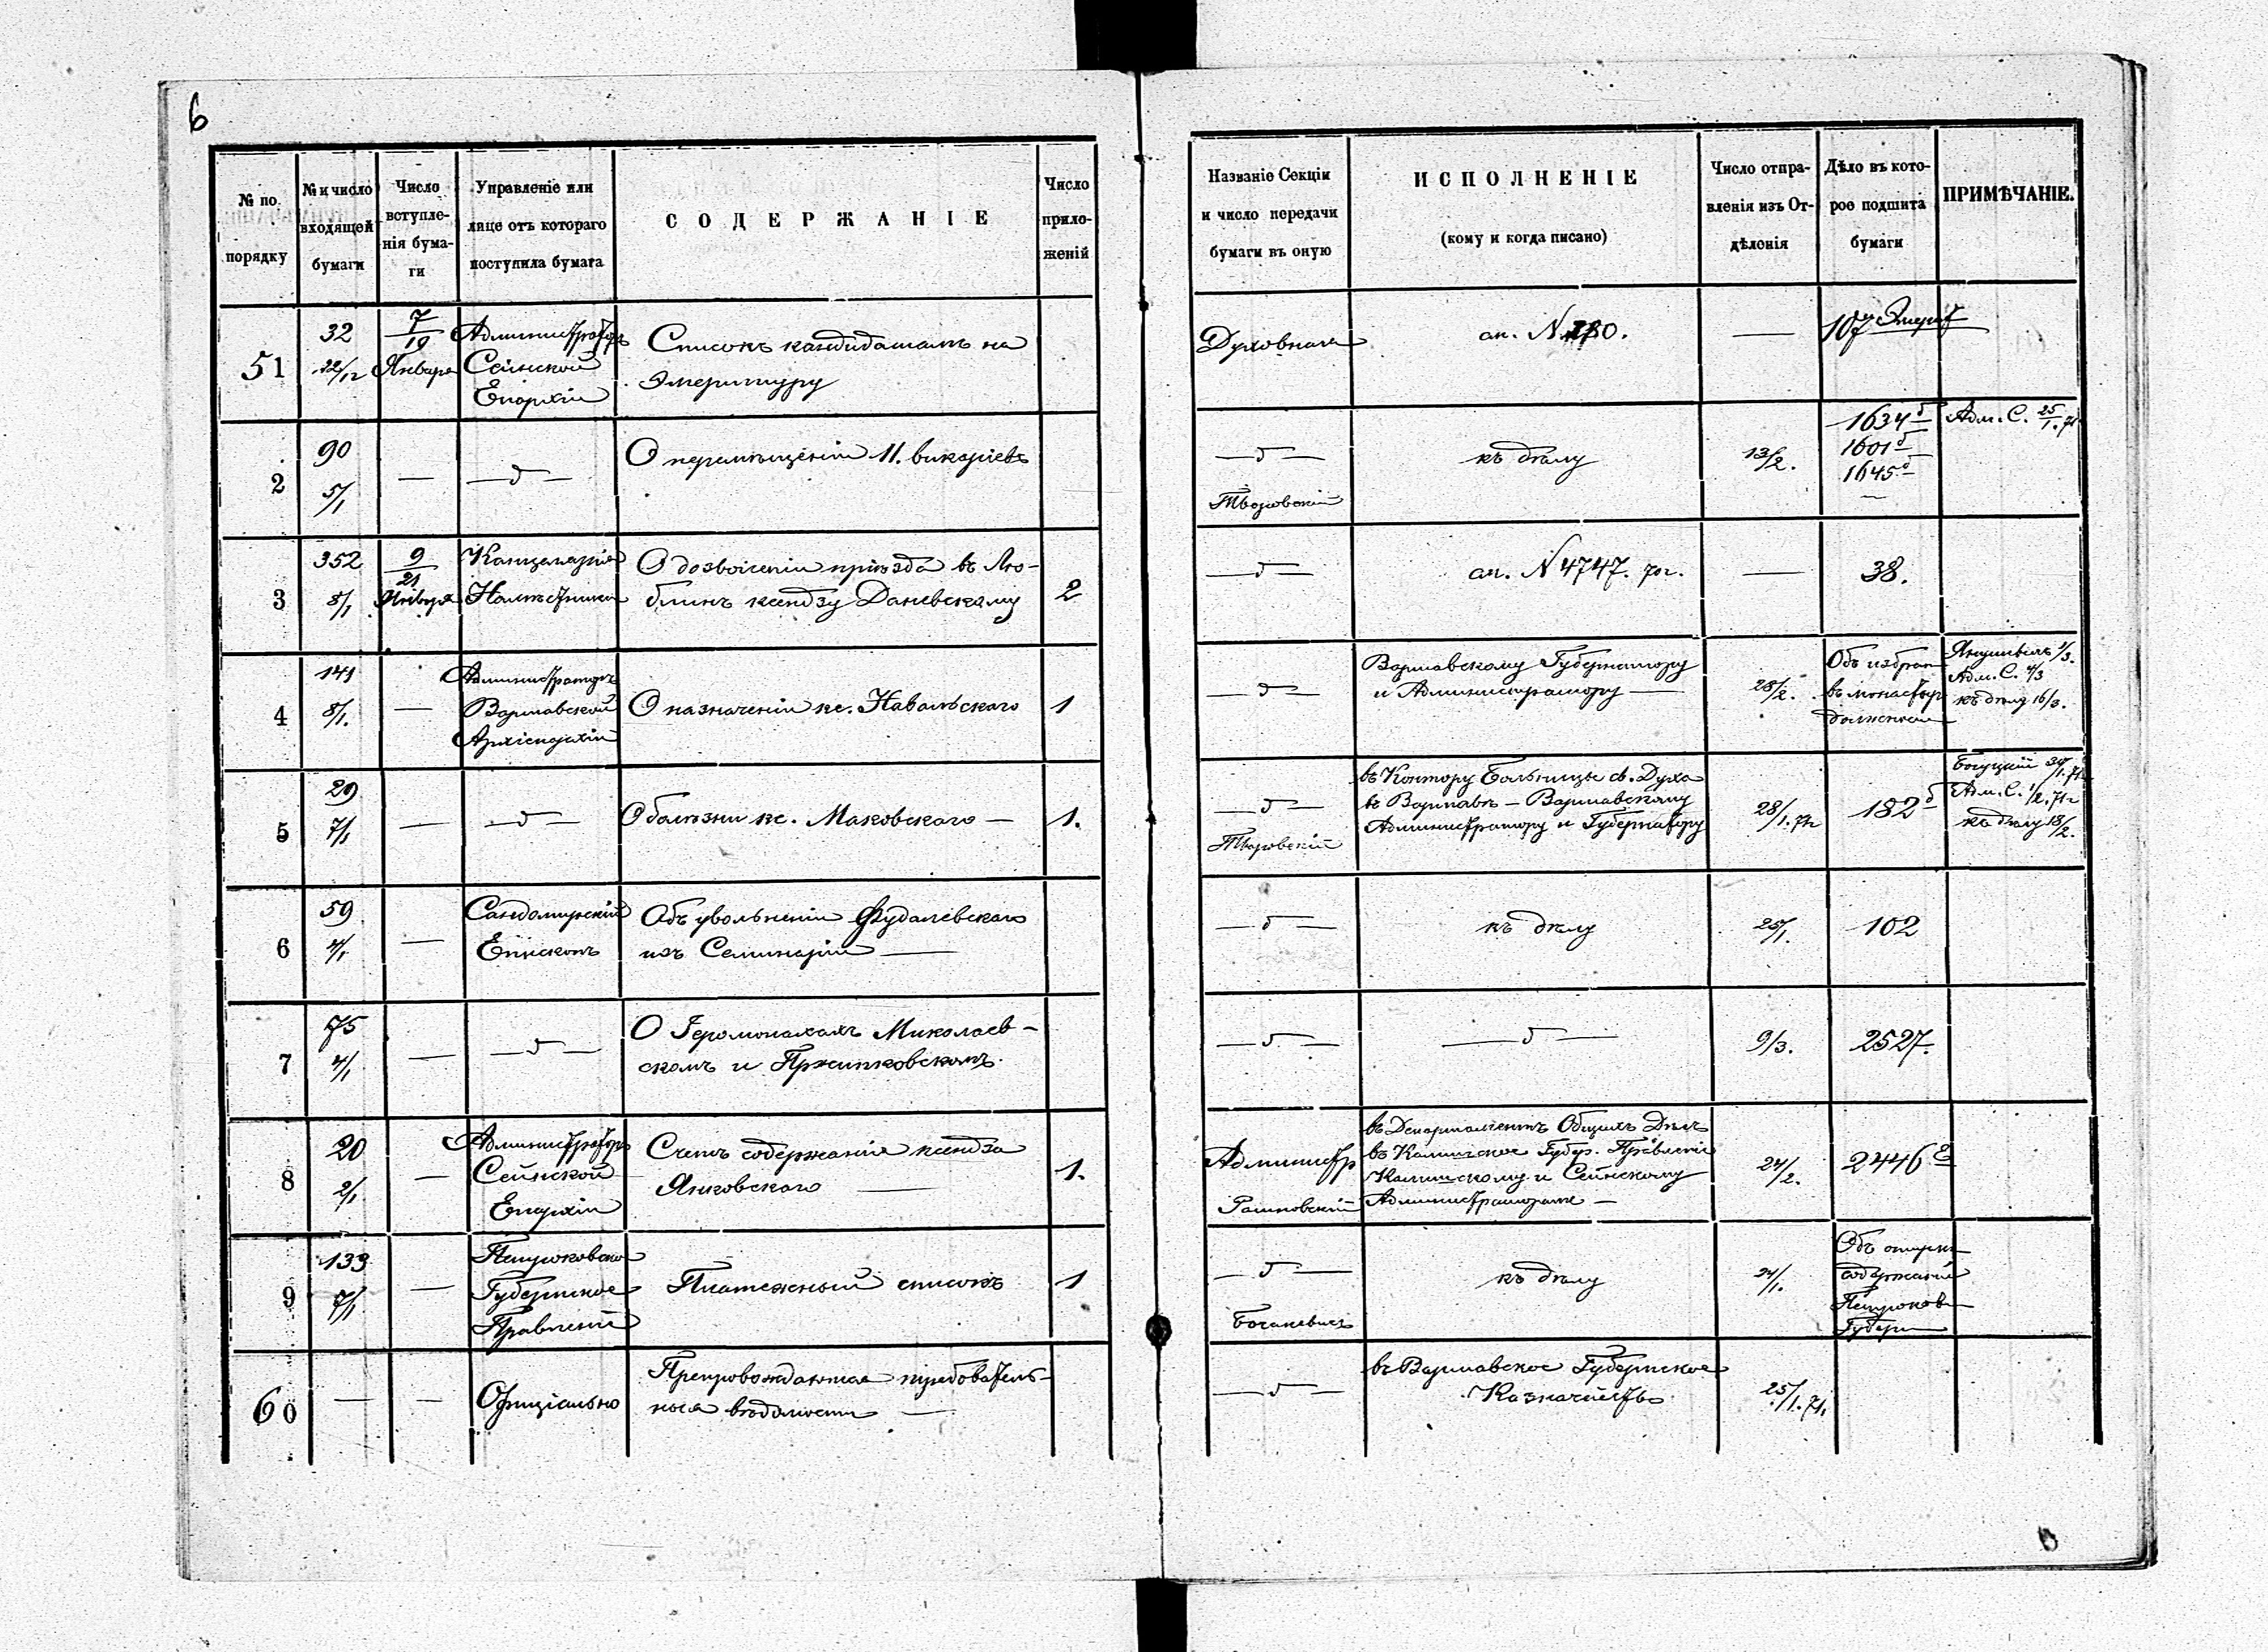 6
№ по порядку
№ и число входящей бумаги
Число вступле-
нія бума-
ги
Управленіе или
лице отъ котораго
поступила бумага
СОДЕРЖАНІЕ
Число
прило-
женій
Названіе Секціи
и число передачи
бумаги въ оную
ИСПОЛНЕНІЕ
(кому и когда писано)
Число отпра-
вленія изъ От-
дѣленія
Дѣло въ кото-
рое подшита
бумаги
ПРИМѢЧАНІЕ.
51
32
22/12
7/19
Января
Администраторъ
Сейнской
Епархіи
Списокъ кандидатамъ на
Эмеритуру
Духовная
—
2
90
5/1
—
—д—
О перемѣщеніи 11. викаріевъ
—д—
къ дѣлу
13/2.
1634 б
1601 б
1645 б
Адм. С. 25/1. 71
3
352
8/1
9/21
Января
Канцелярія
Намѣстника
О дозволеніи пріѣзда въ Лю-
блинъ ксендзу Даневскому
2
—д—
ол. N 4747. 70г.
—
38.
4
141
8/1.
—
Администраторъ
Варшавской
Архіепархіи
О назначеніи кс. Навальскаго
1
—д—
Варшавскому Губернатору
и Администратору —
28/2.
Объ избран
въ монастыр
должности
Адм. С. 4/3
къ дѣлу 16/3.
5
29
7/1
—
—д—
О болѣзни кс. Маковскаго —
1.
—д—
въ Контору Больницы св. Духа
въ Варшавѣ — Варшавскому
Администратору и Губернатору
28/1. 71
182 б
Адм. С. 1/2. 71
къ дѣлу 18/2.
6
59
4/1
—
Сандомирскій
Епископъ
Объ увольненіи Фудалевскаго
изъ Семинаріи —
—д—
къ дѣлу
25/1.
102
7
75
4/1
—
—д—
О Іеромонахахъ Миколаев-
скомъ и Пржипковскомъ.
—д—
—д—
9/3.
2527.
8
20
2/1
—
Администраторъ
Сейнской
Епархіи
Счетъ содержанія ксендза
Янковскаго —
1.
Администр
Рашковскій
въ Департаментъ Общихъ Дѣлъ
въ Калишское Губер. Правленіе
Калишскому и Сейнскому
Администраторамъ —
24/2.
2446 Е
9
133
7/1
—
Петроковское
Губернское
Правленіе
Платежный списокъ
1
—д—
къ дѣлу
24/1.
содержаній
Петроков
Губерн
60
—
—
Офиціально
Препровождаются требователь-
ныя вѣдомости —
—д—
въ Варшавское Губернское
Казначейство
25/1. 71.